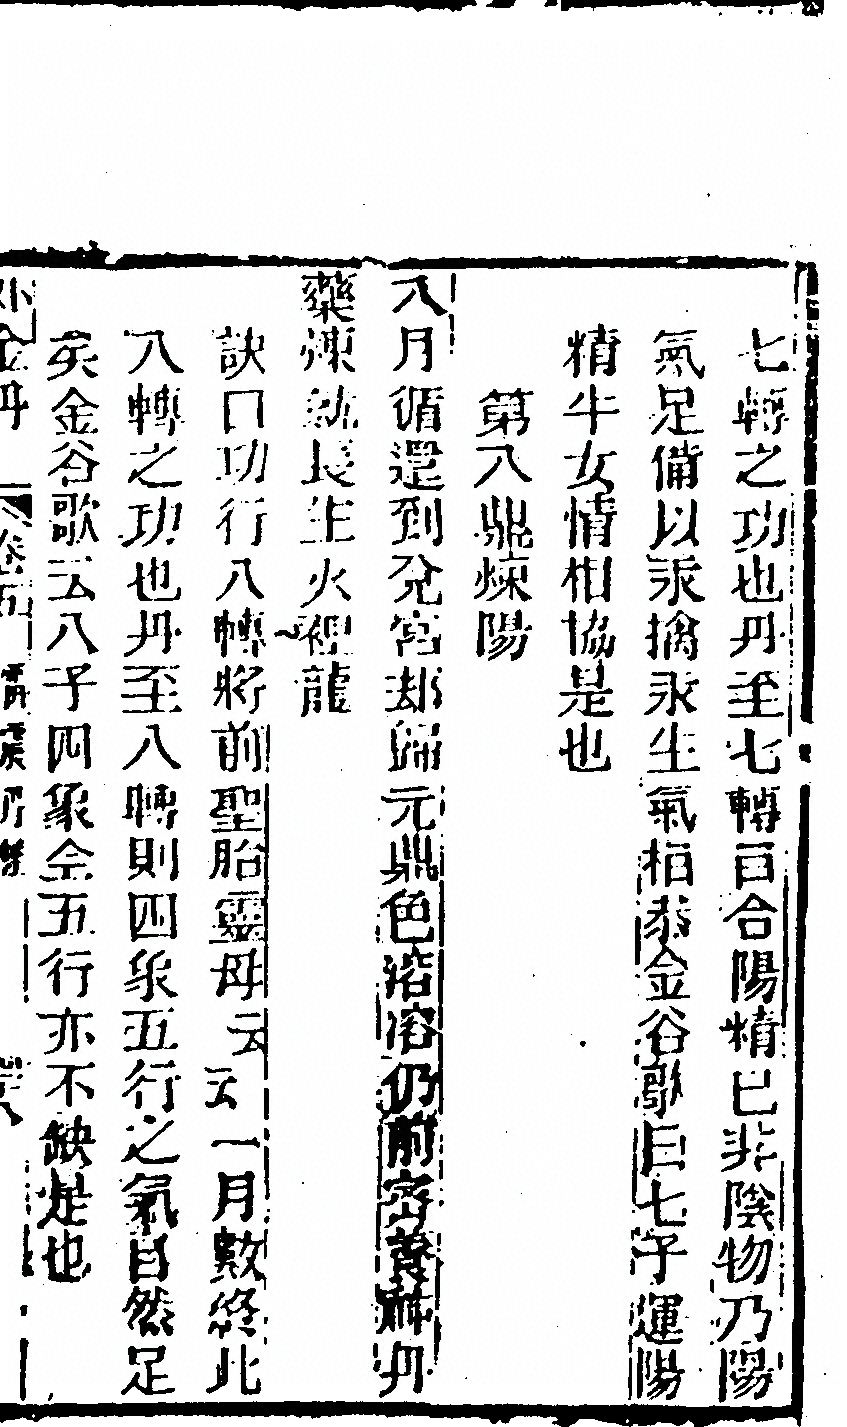 七轉之功也丹至七轉百合陽精已非陰物乃陽
氣足備以汞擒汞生氣相泰金谷歌曰七子運陽
精牛女情相協是也
第八鼎煉陽
八月循還到兌宮却歸元鼎色溶溶仍前密養神丹
藥煉就長生火裡龍
訣曰功行八轉將前聖胎靈母云云一月數終此
八轉之功也丹至八轉則四象五行之氣自然足
矣金谷歌云八子四象全五行亦不缺是也
外金丹 卷五